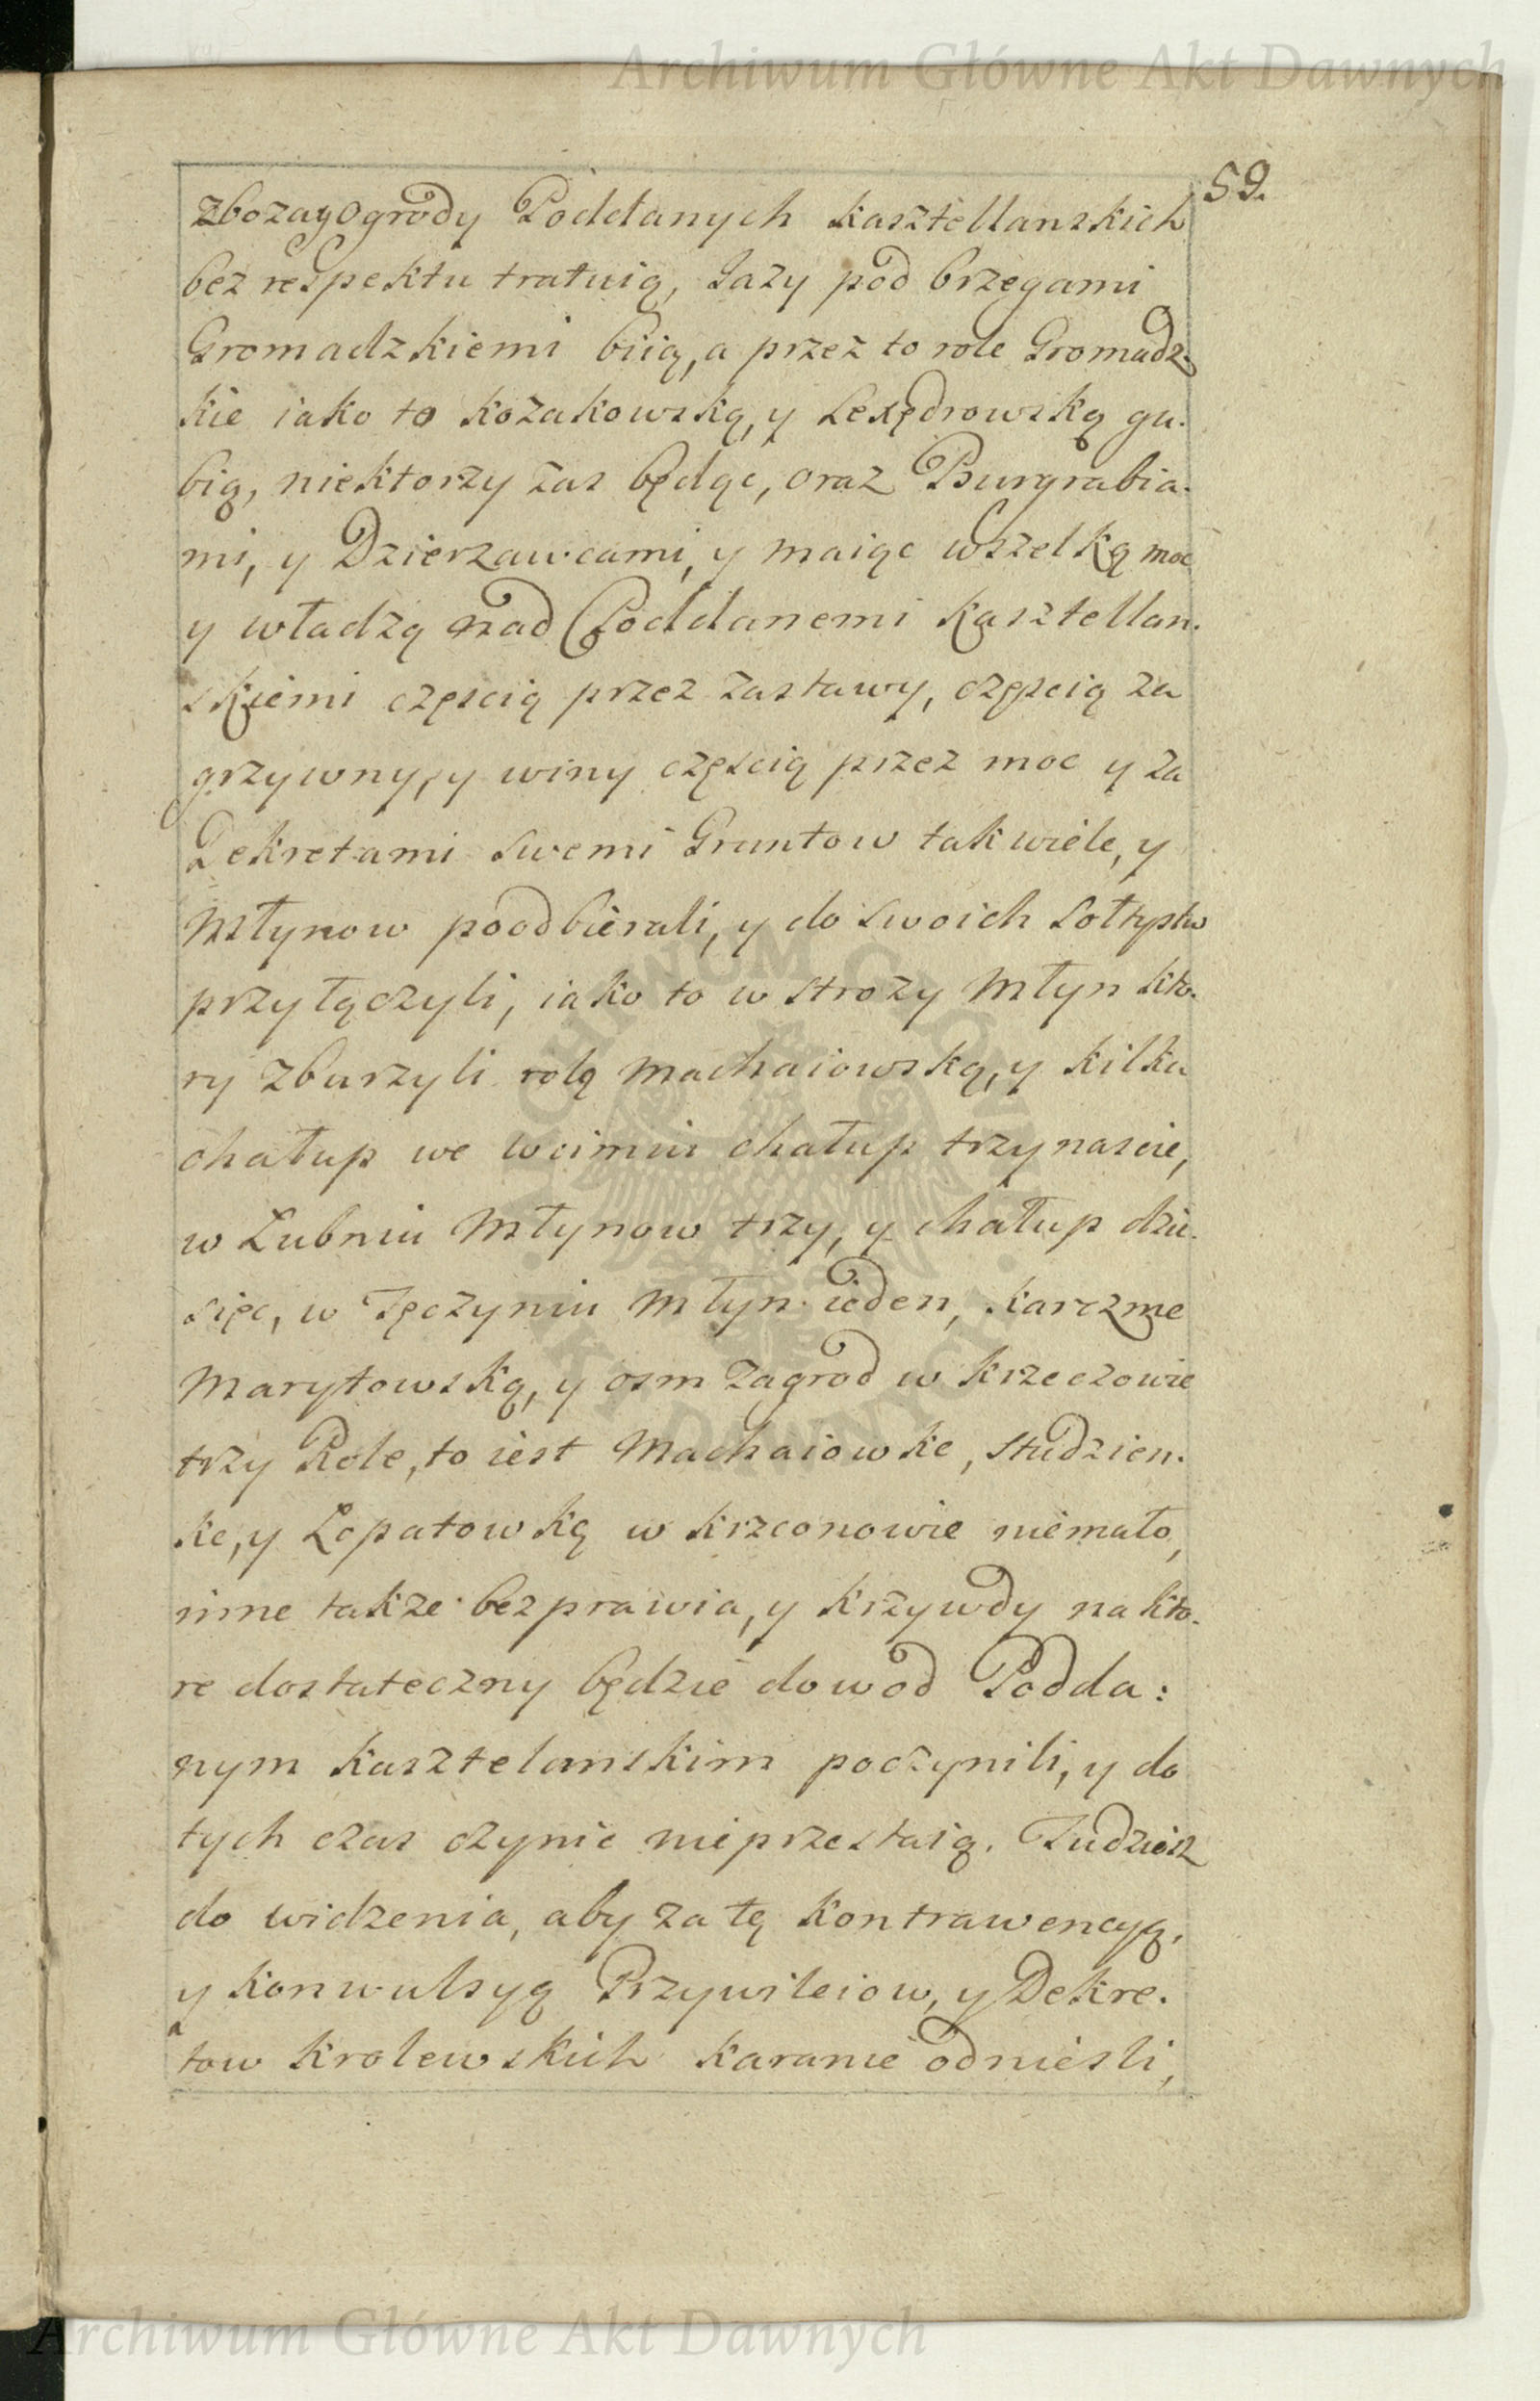 Archiwum Główne Akt Dawnych
59.
zboza y Ogrody Poddanych kasztellanskich
bez respektu tratuią, Jazy pod brzegami
Gromadzkiemi biią, a przez to role Gromadz-
kie iako to kozakowską, y Lexędrowską gu-
bią, niektorzy zas będąc, oraz Burgrabia-
mi, y Dzierzawcami, y maiąc wszelką moc
y władzą nad Poddanemi kasztellan-
skiemi częscią przez zastawy, częscią za
grzywny, y winy częscią przez moc y za
Dekretami swemi Gruntow tak wiele, y
Młynow poodbierali, y do swoich Sołtystw
przyłączyli, iako to w Strozy Młyn kto-
ry zburzyli rolą Machaiowską, y kilka
chałup we wcimiu chałup trzynascie,
w Lubniu Młynow trzy, y chałup dzie-
sięc, w Tęczyniu Młyn ieden, karczme
Marytowską, y osm zagrod w krzeczowie
trzy Role, to iest Machaiowke, Studzien-
ke, y Łopatowką w krzconowie niemało,
inne takze bezprawia, y krzywdy na kto-
re dostateczny będzie dowod Podda:
nym kasztelanskim poczynili, y do
tych czas czynic nieprzestaią. Tudziesz
do widzenia, aby za tę kontrawencyą,
y konwulsyą Przywileiow, y Dekre-
tow krolewskich karanie odniesli,
Archiwum Główne Akt Dawnych